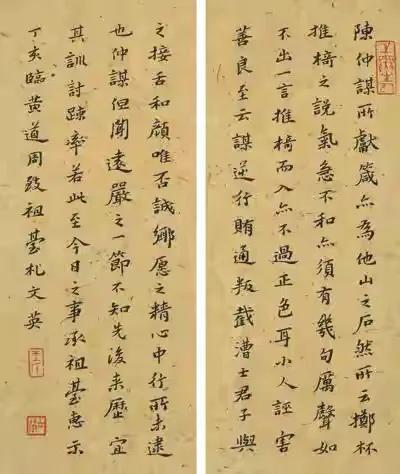 陳仲謀所獻箴亦為他山之石然所云擲杯
推椅之說氣急不和亦須有幾句厲聲如
不出一言推椅而入亦不過正色耳小人誣害
善良至云謀逆行賄通叛截漕士君子與
之接舌和顏唯否誠鄉愿之精心中行所未逮
也仲謀但聞遠嚴之一節不知先後來歷宜
其訓討踈率若此至今日之事承祖臺惠示
丁亥臨黃道周致祖臺札文英